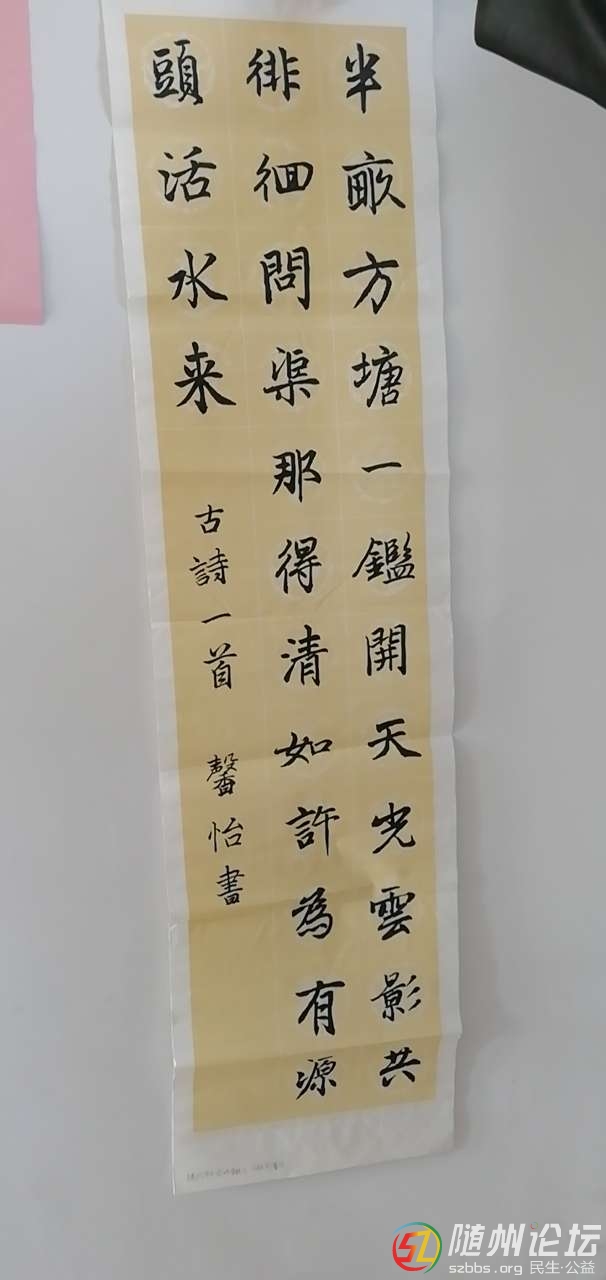 半畝方塘一鑑開天光雲影共
徘徊問渠那得清如許為有源
頭活水来
古詩一首 馨怡書
随州论坛
szbbs.org 民生·公益